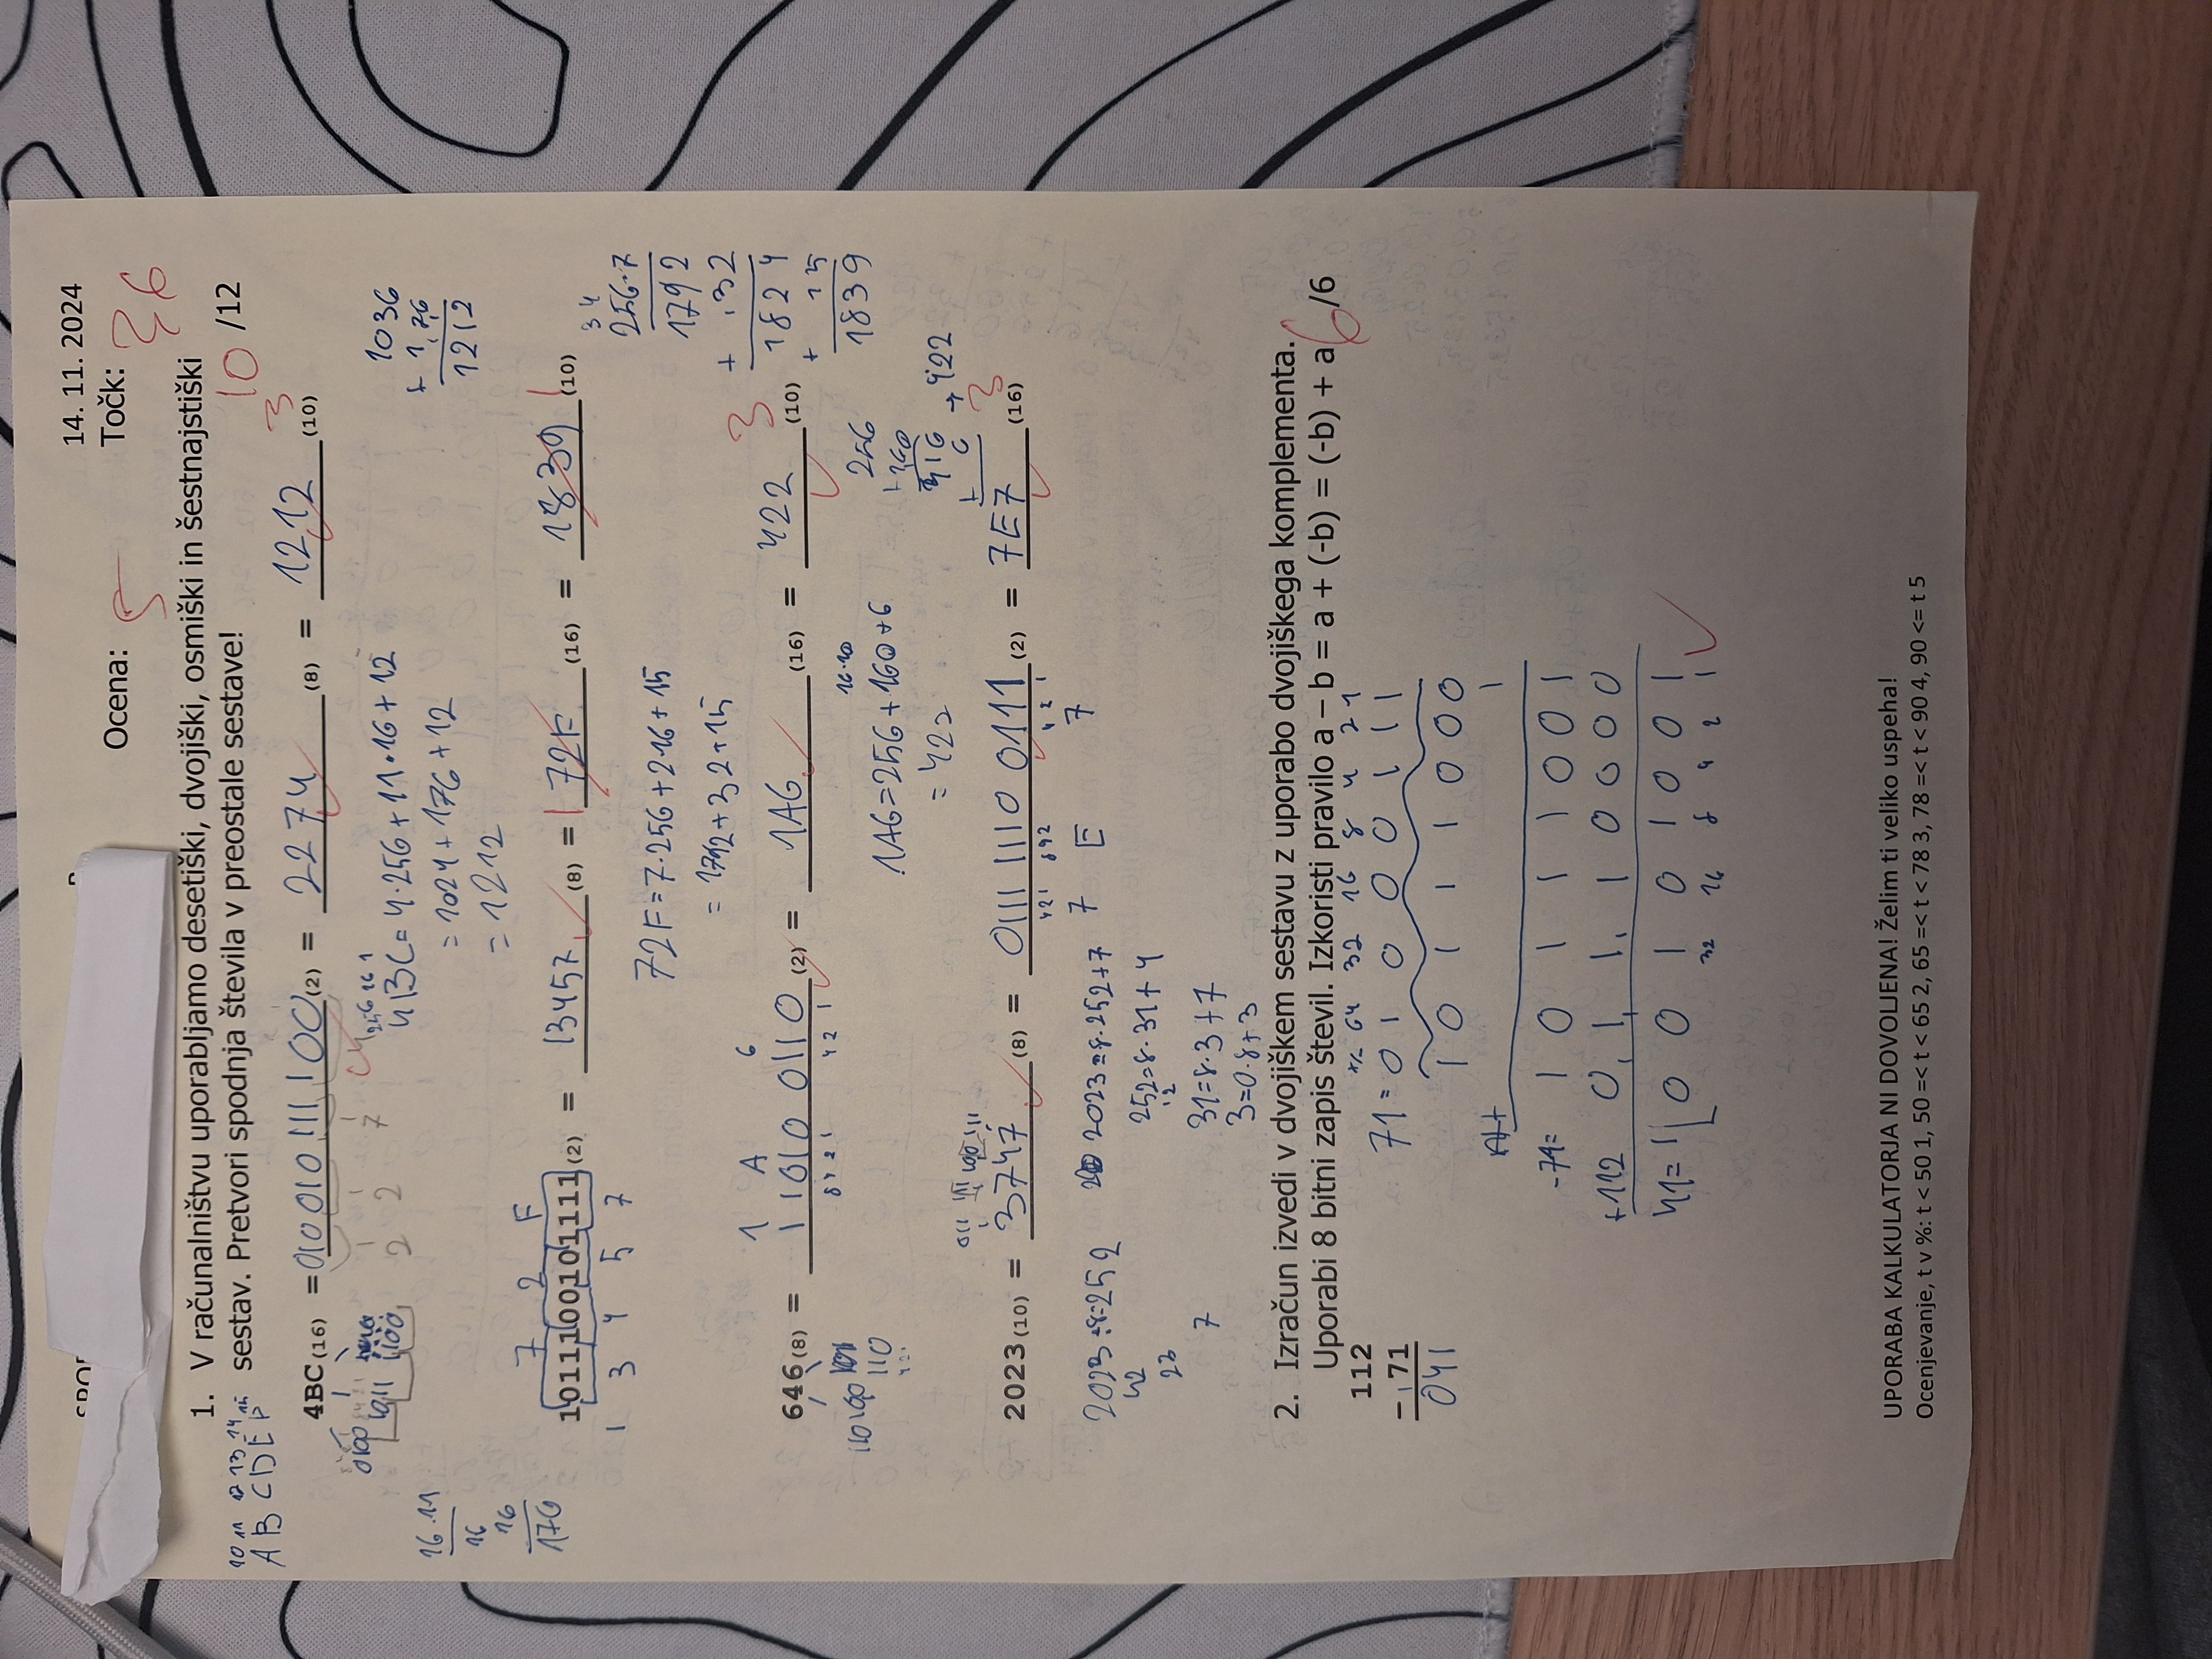 14. 11. 2024
Ocena: 5 Točk: 36
1. V računalništvu uporabljamo desetiški, dvojiški, osmiški in šestnajstiški
sestav. Pretvori spodnja števila v preostale sestave! 10 /12
10 11 12 13 14 15
A B C D E F
4BC(16) = 010 010 111 100(2) = 2274(8) = 1212(10) 3
0100 1011 1100
2 2 7 4
256 16 1
4BC = 4·256 + 11·16 + 12
= 1024 + 176 + 12
= 1212
1036
+ 176
1212
16·11
16
16
176
7 2 F
1011100101111(2) = 13457(8) = 72F(16) = 1839(10) 1
1 3 4 5 7
72F = 7·256 + 2·16 + 15
= 1792 + 32 + 15
34
256·7
1792
+ 32
1824
+ 15
1839
1 A 6
646(8) = 1 1010 0110(2) = 1A6(16) = 422(10) 3
8 4 2 1 4 2 1
110 100 110
4 2 1
16·10
1A6 = 256 + 160 + 6
= 422
256
+ 160
416
+ 6 → 422
011 111 100 111
2023(10) = 3747(8) = 0111 1110 0111(2) = 7E7(16) 3
4 2 1 8 4 2 4 2 1
7 E 7
2023:8=252
42
23
7
2023=8·252+7
252=8·31+4
12
31=8·3+7
3=0·8+3
2. Izračun izvedi v dvojiškem sestavu z uporabo dvojiškega komplementa.
Uporabi 8 bitni zapis števil. Izkoristi pravilo a – b = a + (-b) = (-b) + a 6 /6
112
– 71
041
+/- 64 32 16 8 4 2 1
71 = 0 1 0 0 0 1 1 1
1 0 1 1 1 0 0 0
1
-71= 1 0 1 1 1 0 0 1
+112 0 1 1 1 0 0 0 0
41= 1 0 0 1 0 1 0 0 1
32 16 8 4 2 1
UPORABA KALKULATORJA NI DOVOLJENA! Želim ti veliko uspeha!
Ocenjevanje, t v %: t < 50 1, 50 =< t < 65 2, 65 =< t < 78 3, 78 =< t < 90 4, 90 <= t 5